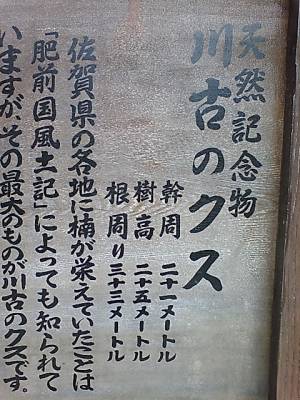 天然記念物
川古のクス
幹周 二十一メートル
樹高 二十五メートル
根周り三十三メートル
佐賀県の各地に楠が栄えていたことは
「肥前国風土記」によっても知られて
いますが、その最大のものが川古のクスです。